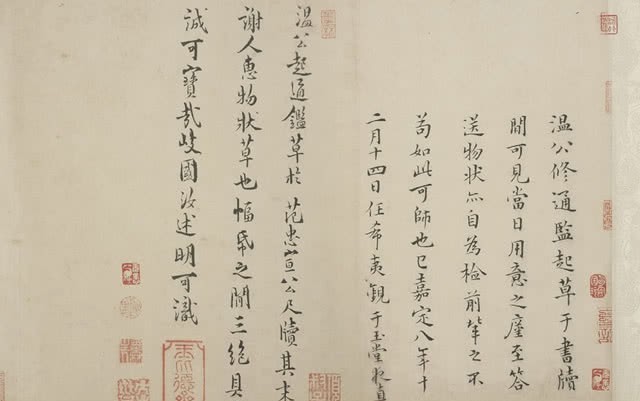 温公修通監起草于書牘
間可見當日用意之廑至答
送物狀亦自為檢前輩之不
苟如此可師也已嘉定八年十
二月十四日任希夷觀于玉堂夜直
温公起通鑑草於范忠宣公尺牘其末
謝人惠物狀草也幅帋之間三絶具
誠可寶哉歧國汝述明可識